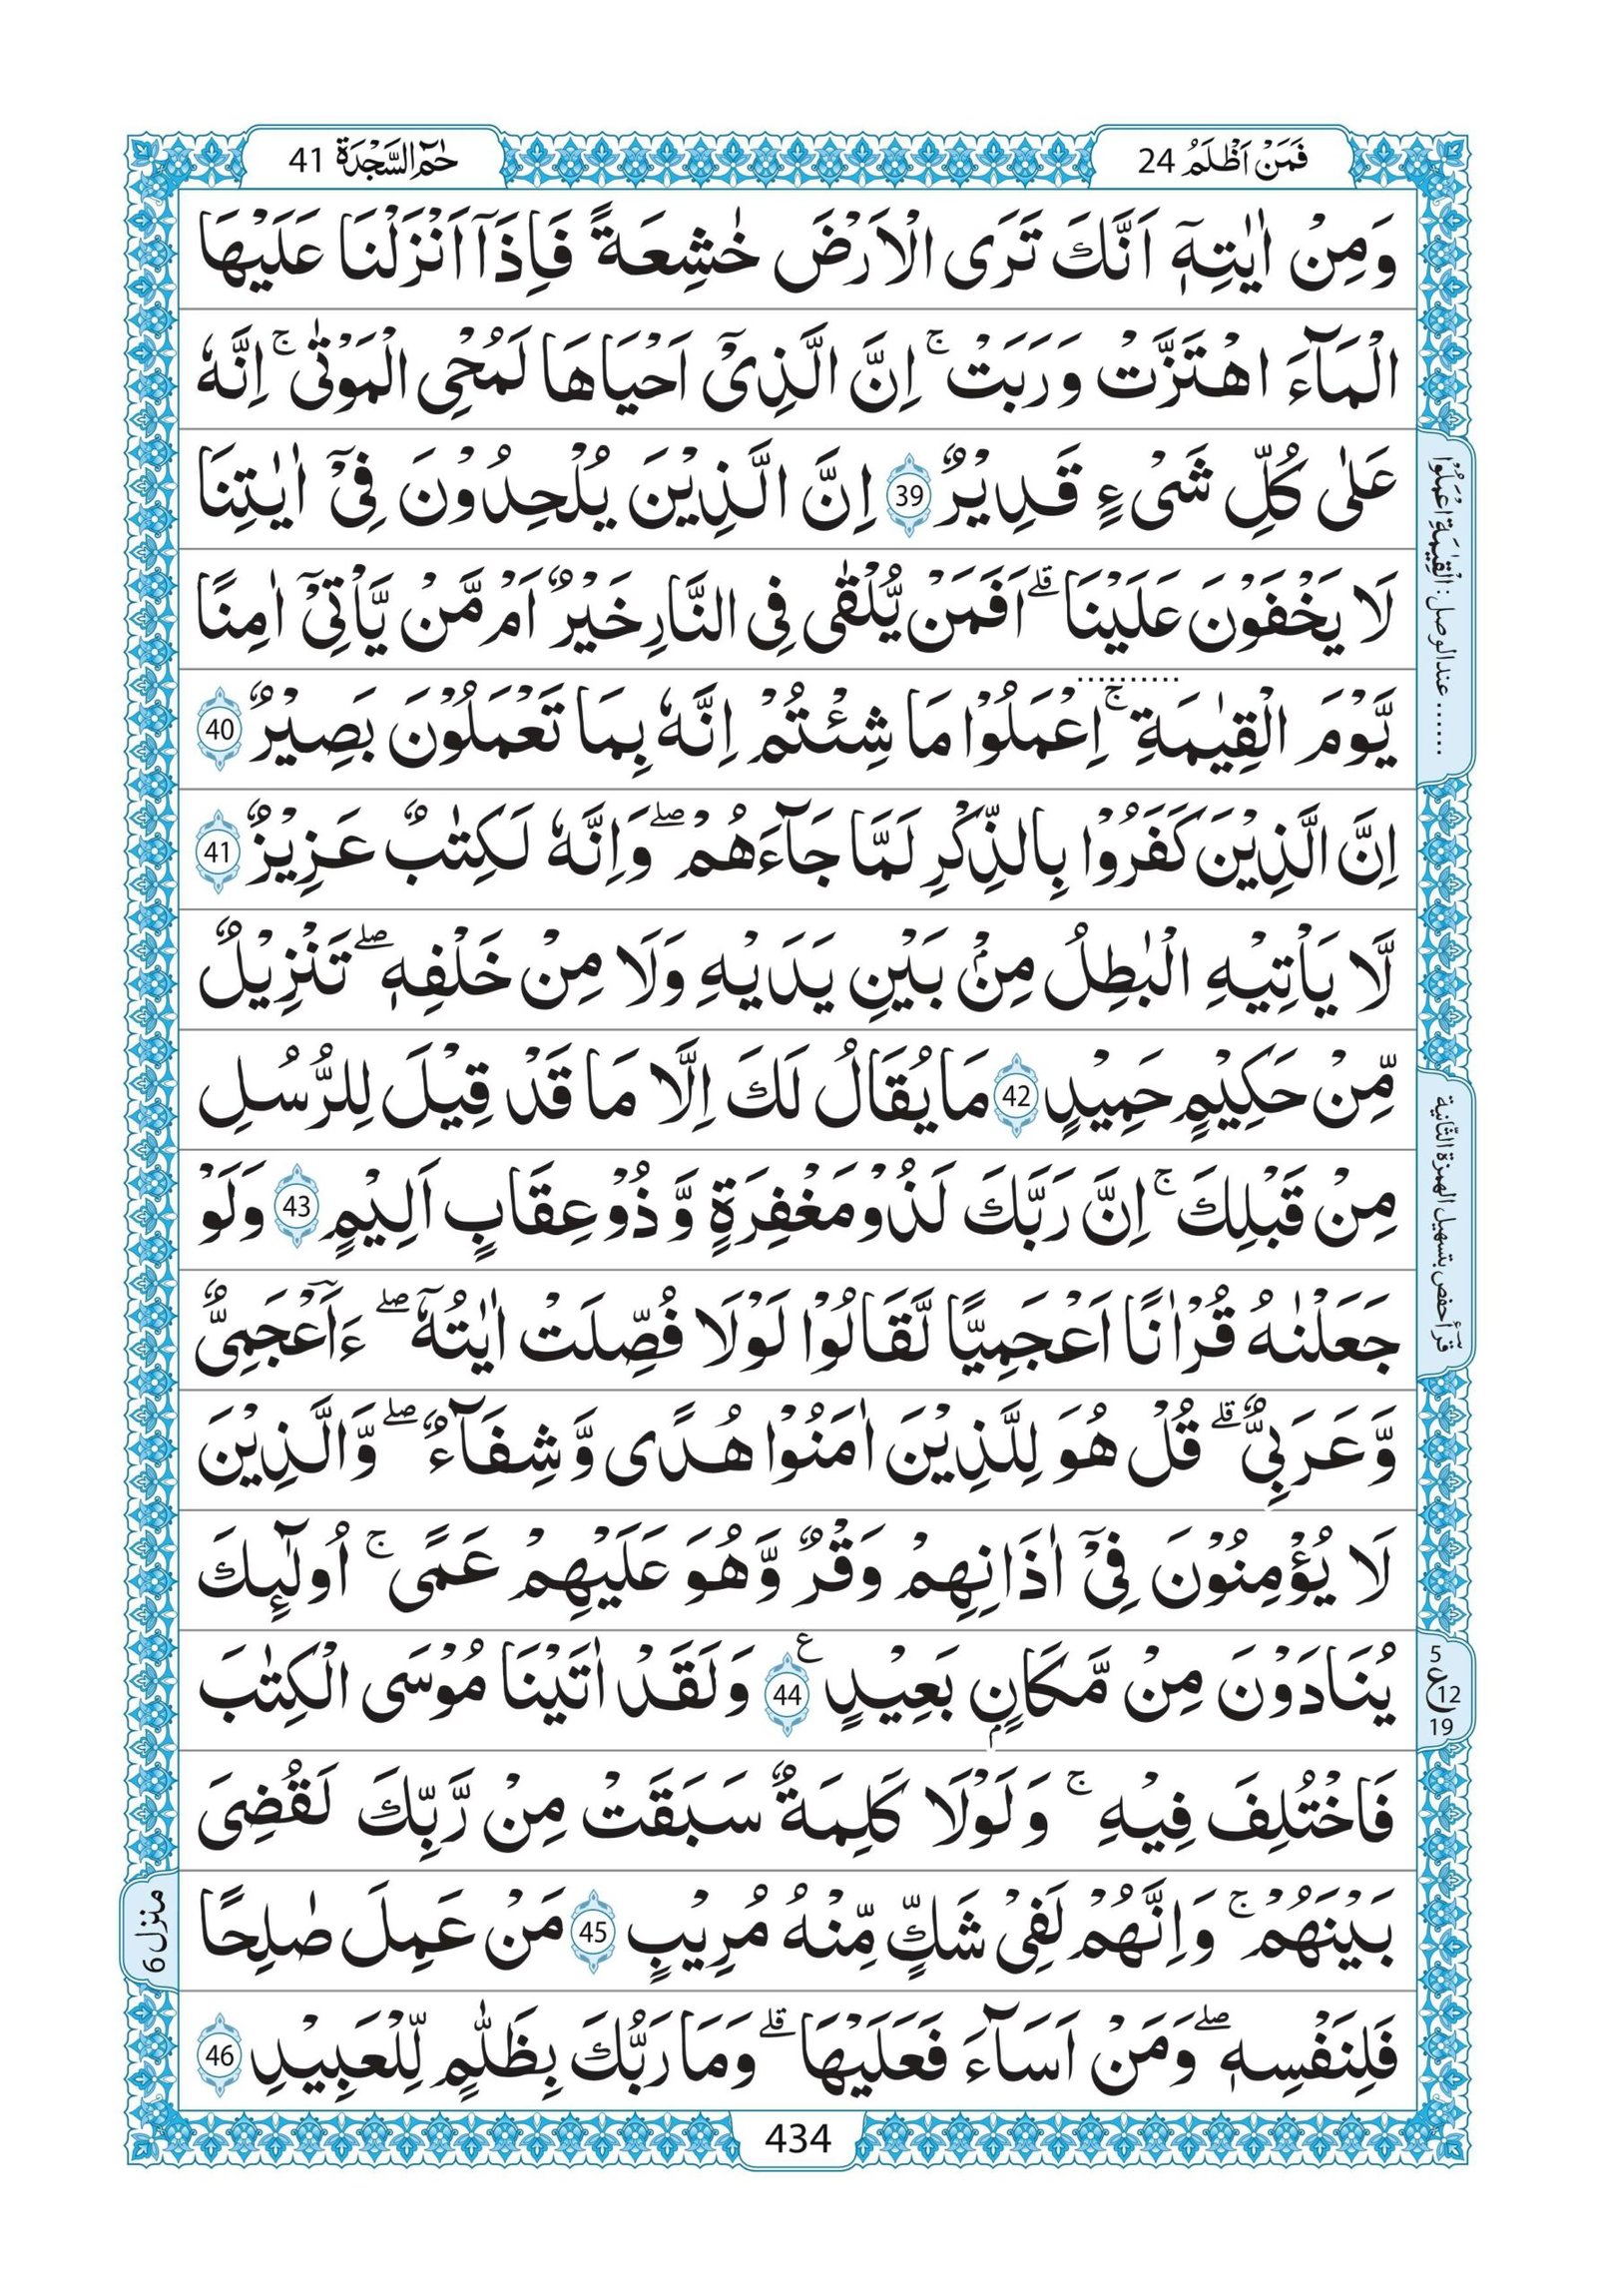 فَمَنْ اَظْلَمُ 24
حٰمٓ السَّجْدَة 41
وَمِنْ اٰيٰتِهٖٓ اَنَّكَ تَرَى الْاَرْضَ خٰشِعَةً فَاِذَآ اَنْزَلْنَا عَلَيْهَا
الْمَآءَ اهْتَزَّتْ وَرَبَتْ ۚ اِنَّ الَّذِيْٓ اَحْيَاهَا لَمُحْيِ الْمَوْتٰى ۚ اِنَّهٗ
عَلٰى كُلِّ شَيْءٍ قَدِيْرٌ 39 اِنَّ الَّذِيْنَ يُلْحِدُوْنَ فِيْٓ اٰيٰتِنَا
لَا يَخْفَوْنَ عَلَيْنَا ۗ اَفَمَنْ يُّلْقٰى فِى النَّارِ خَيْرٌ اَمْ مَّنْ يَّاْتِيْٓ اٰمِنًا
يَّوْمَ الْقِيٰمَةِ ۚ اِعْمَلُوْا مَا شِئْتُمْ اِنَّهٗ بِمَا تَعْمَلُوْنَ بَصِيْرٌ 40
اِنَّ الَّذِيْنَ كَفَرُوْا بِالذِّكْرِ لَمَّا جَآءَهُمْ ۖ وَاِنَّهٗ لَكِتٰبٌ عَزِيْزٌ 41
لَّا يَاْتِيْهِ الْبٰطِلُ مِنْۢ بَيْنِ يَدَيْهِ وَلَا مِنْ خَلْفِهٖ ۖ تَنْزِيْلٌ
مِّنْ حَكِيْمٍ حَمِيْدٍ 42 مَا يُقَالُ لَكَ اِلَّا مَا قَدْ قِيْلَ لِلرُّسُلِ
مِنْ قَبْلِكَ ۚ اِنَّ رَبَّكَ لَذُوْ مَغْفِرَةٍ وَّذُوْ عِقَابٍ اَلِيْمٍ 43 وَلَوْ
جَعَلْنٰهُ قُرْاٰنًا اَعْجَمِيًّا لَّقَالُوْا لَوْلَا فُصِّلَتْ اٰيٰتُهٗٓ ۖ ءَاَعْجَمِيٌّ
وَّعَرَبِيٌّ ۗ قُلْ هُوَ لِلَّذِيْنَ اٰمَنُوْا هُدًى وَّشِفَآءٌ ۖ وَّالَّذِيْنَ
لَا يُؤْمِنُوْنَ فِيْٓ اٰذَانِهِمْ وَقْرٌ وَّهُوَ عَلَيْهِمْ عَمًى ۚ اُولٰٓئِكَ
يُنَادَوْنَ مِنْ مَّكَانٍۢ بَعِيْدٍ 44 ع وَلَقَدْ اٰتَيْنَا مُوْسَى الْكِتٰبَ
فَاخْتُلِفَ فِيْهِ ۚ وَلَوْلَا كَلِمَةٌ سَبَقَتْ مِنْ رَّبِّكَ لَقُضِيَ
بَيْنَهُمْ ۚ وَاِنَّهُمْ لَفِيْ شَكٍّ مِّنْهُ مُرِيْبٍ 45 مَنْ عَمِلَ صٰلِحًا
فَلِنَفْسِهٖ ۖ وَمَنْ اَسَآءَ فَعَلَيْهَا ۗ وَمَا رَبُّكَ بِظَلّٰمٍ لِّلْعَبِيْدِ 46
عند الوصل : الْقِيٰمَةِ اعْمَلُوْا
قرأ حفص بتسهيل الهمزة الثّانية
5
ع 12
19
منزل 6
434